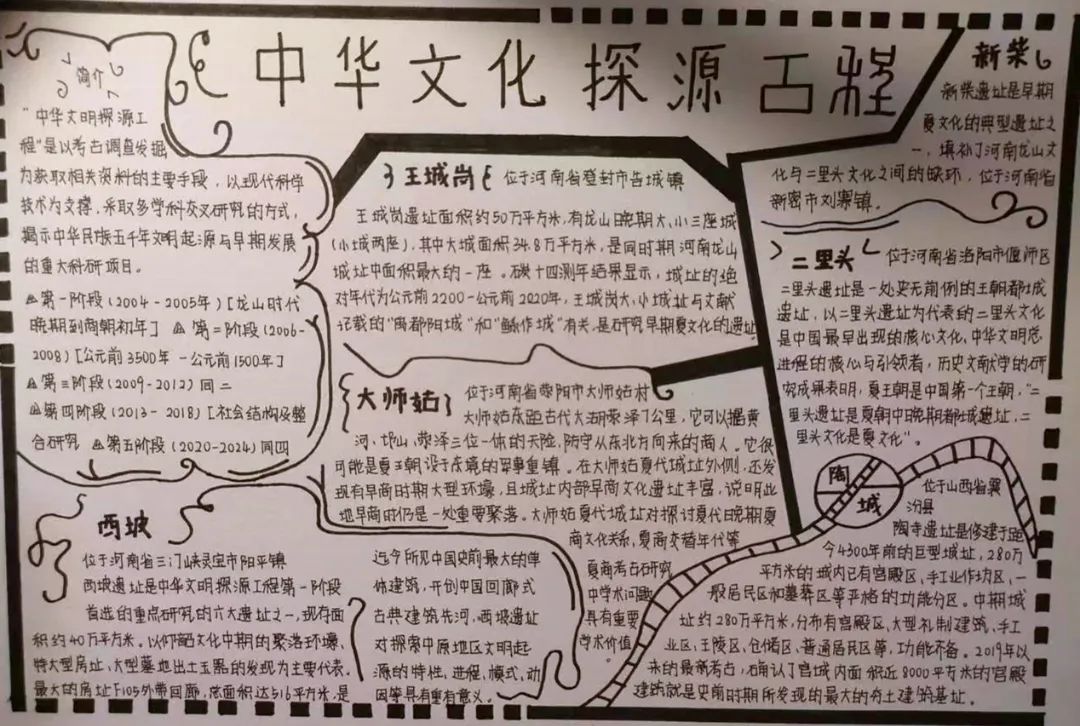 中华文化探源工程
简介
"中华文明探源工
程"是以考古调查发掘
为获取相关资料的主要手段，以现代科学
技术为支撑，采取多学科交叉研究的方式，
揭示中华民族五千年文明起源与早期发展
的重大科研项目。
第一阶段（2004-2005年）[龙山时代
晚期到商朝初年] 第二阶段（2006-
2008）[公元前3500年-公元前1500年]
第三阶段（2009-2012）同二
第四阶段（2013-2018）[社会结构及整
合研究 第五阶段（2020-2024）同四
王城岗 位于河南省登封市告城镇
王城岗遗址面积约50万平方米，有龙山晚期大、小三座城
（小城两座），其中大城面积34.8万平方米，是同时期河南龙山
城址中面积最大的一座。碳十四测年结果显示，城址的绝
对年代为公元前2200-公元前2020年，王城岗大、小城址与文献
记载的"禹都阳城"和"鲧作城"有关，是研究早期夏文化的遗址
新柴
新柴遗址是早期
夏文化的典型遗址之
一，填补了河南龙山文
化与二里头文化之间的缺环，位于河南省
新密市刘寨镇。
二里头 位于河南省洛阳市偃师区
二里头遗址是一处史无前例的王朝都城
遗址，以二里头遗址为代表的二里头文化
是中国最早出现的核心文化，中华文明总
进程的核心与引领者，历史文献学的研
究成果表明，夏王朝是中国第一个王朝，"二
里头遗址是夏朝中晚期都城遗址，二
里头文化是夏文化"。
大师姑 位于河南省荥阳市大师姑村
大师姑东距古代大湖荥泽7公里，它可以据黄
河、邙山、荥泽三位一体的天险，防守从东北方向来的商人。它很
可能是夏王朝设于东境的军事重镇。在大师姑夏代城址外侧，还发
现有早商时期大型环壕，且城址内部早商文化遗址丰富，说明此
地早商时仍是一处重要聚落。大师姑夏代城址对探讨夏代晚期夏
商文化关系，夏商交替年代等
夏商考古研究
中学术问题
具有重要
学术价值
西坡
位于河南省三门峡灵宝市阳平镇
西坡遗址是中华文明探源工程第一阶段
首选的重点研究的六大遗址之一，现存面
积约40万平方米。以仰韶文化中期的聚落环壕、
特大型房址、大型墓地出土玉器的发现为主要代表。
最大的房址F105外带回廊，总面积达516平方米，是
迄今所见中国史前最大的单
体建筑，开创中国回廊式
古典建筑先河，西坡遗址
对探索中原地区文明起
源的特性、进程、模式、动
因等具有重有意义。
陶城 位于山西省襄
汾县
陶寺遗址是修建于距
今4300年前的巨型城址，280万
平方米的城内已有宫殿区、手工业作坊区、一
般居民区和墓葬区等严格的功能分区。中期城
址约280万平方米，分布有宫殿区、大型礼制建筑、手工
业区、王陵区、仓储区、普通居民区等，功能齐备。2019年以
来的最新考古，确认了宫城内面积近8000平方米的宫殿
建筑就是史前时期所发现的最大的夯土建筑基址。